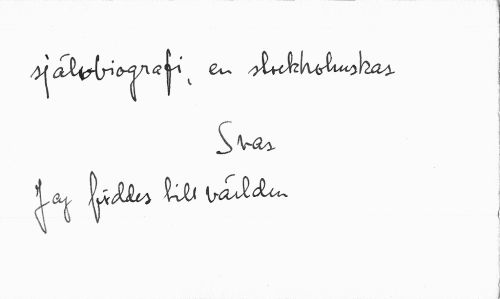 självbiografi, en stockholmskas
Svar
Jag föddes till världen